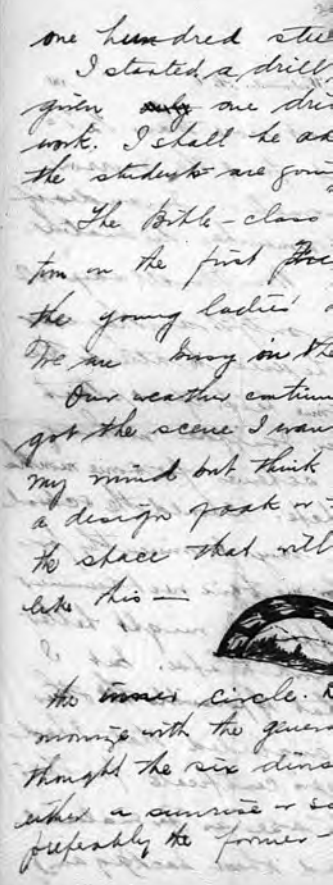 one hundred stu
I started a drill
given only one dri
work. I shall be a
the students are goin
The Bible-class
tion on the first
the young ladies'
We are busy in the
Our weather continu
got the scene I wan
my mind but think
a design
the space that will
like this —
the inner circle.
monize with the gener
thought the six
either a sunrise or s
preferably the former —